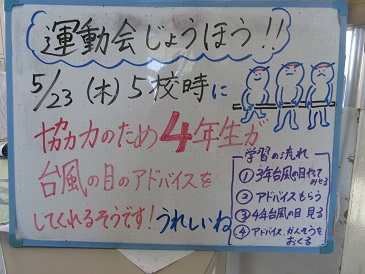 運動会じょうほう!!
5/23(木)5校時に
協力のため4年生が
台風の目のアドバイスを
してくれるそうです!うれしいね
学習の流れ
①3年台風の目やって
みせる
②アドバイスもらう
③4年台風の目 見る
④アドバイス、かんそうを
おくる